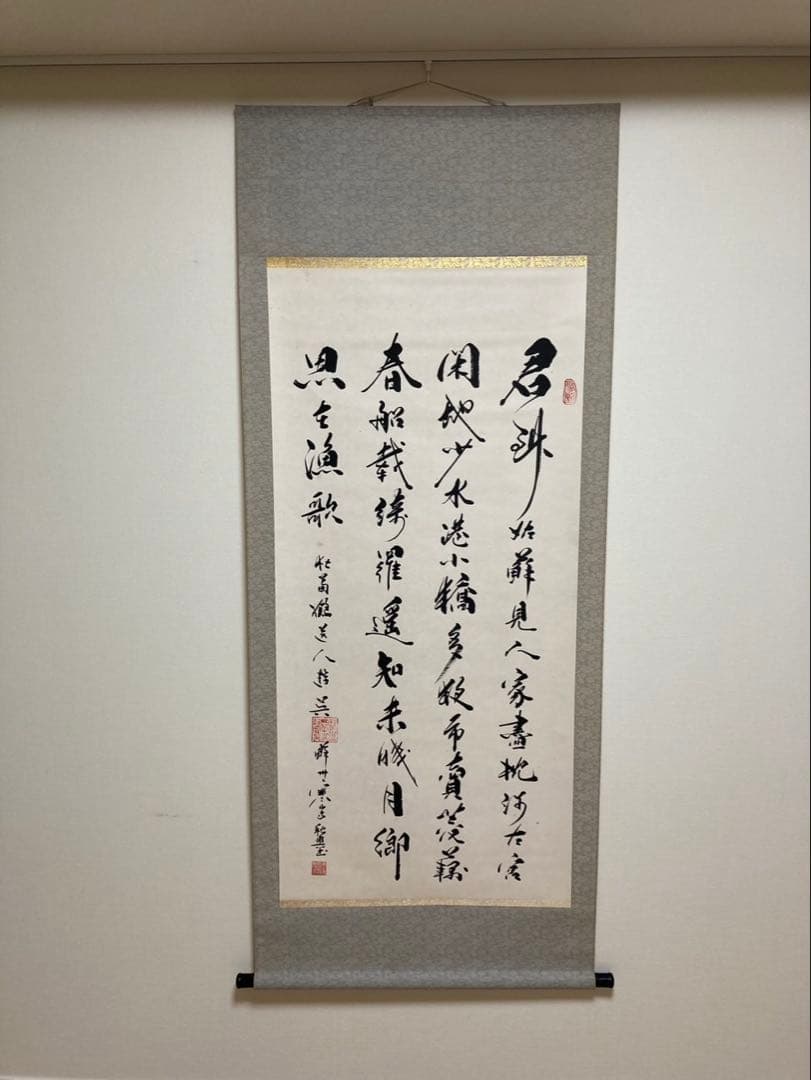 君到姑蘇見人家盡枕河古宮
閑地少水港小橋多夜市賣菱藕
春船載綺羅遙知未眠月鄉
思在漁歌 杜荀鶴送人遊吳
蘇州寒山寺秋爽